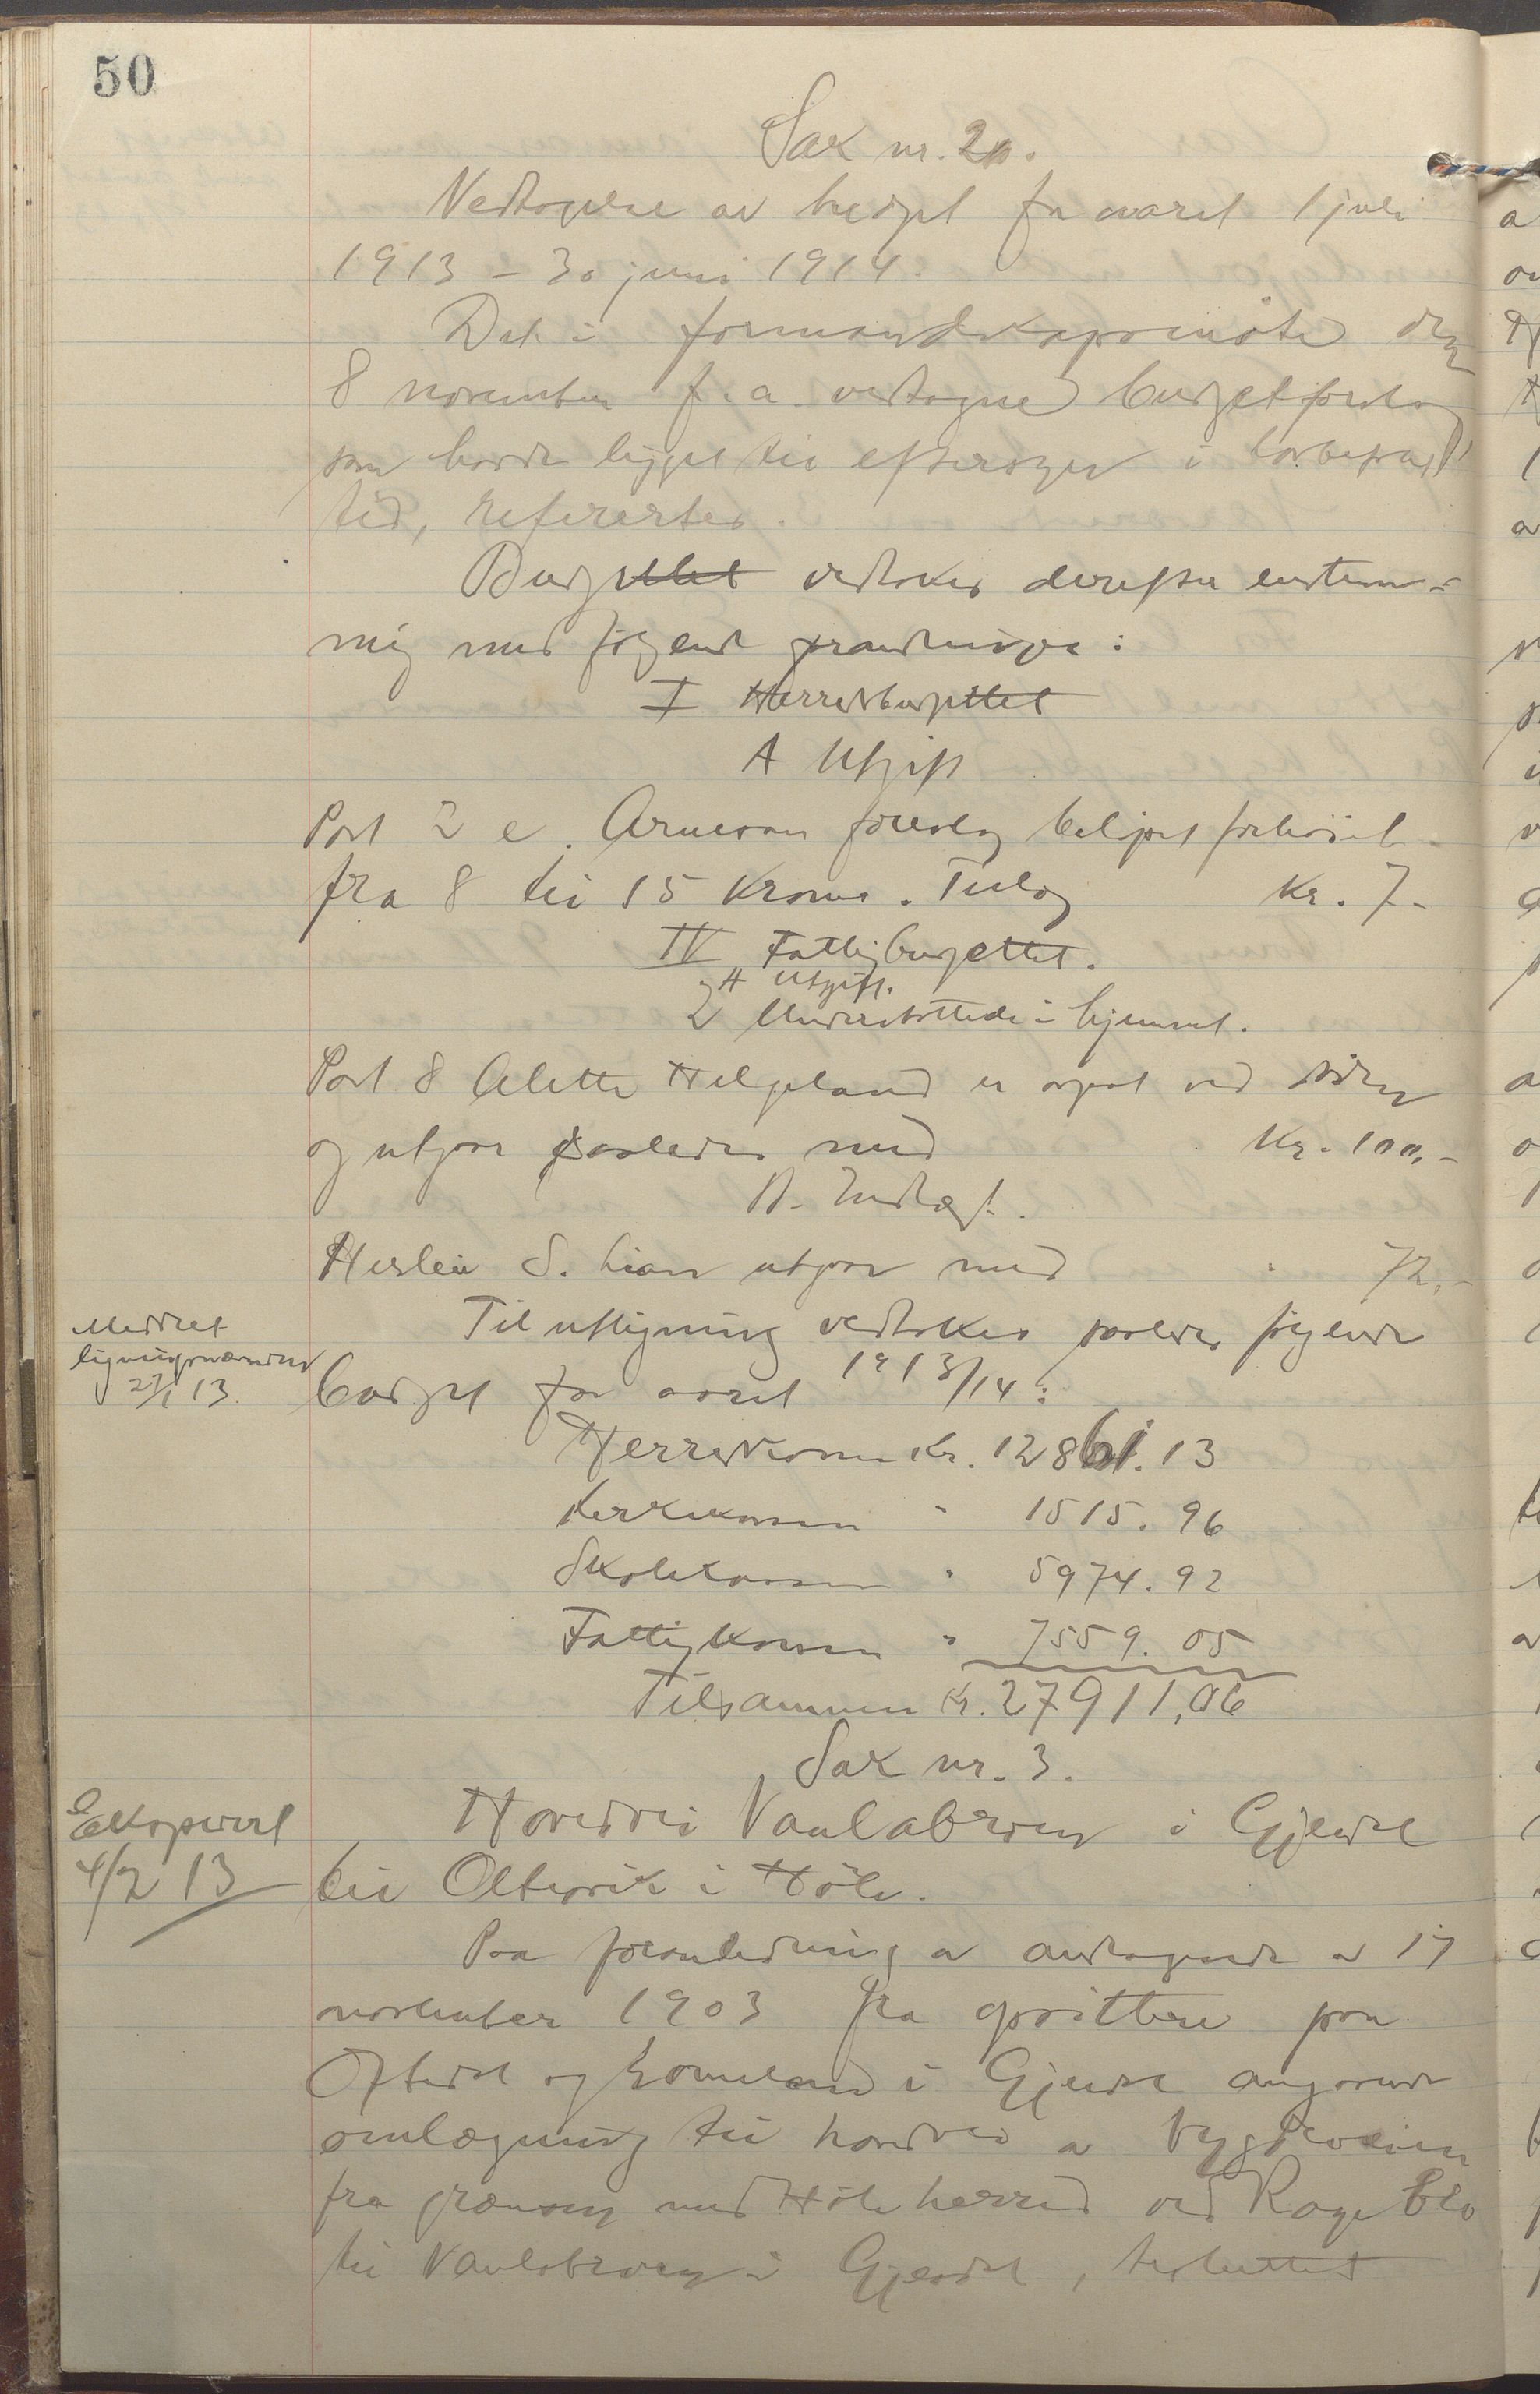 50
Sak nr. 2.
Vedtagelse av budget for aaret 1 juli
1913 – 30 juni 1914.
Det i formandskapsmøte den
8 november f. a. vedtagne budgetforslag
som havde ligget til eftersyn i lovbefalt
tid, referertes.
Budgettet vedtokes derefter enstem-
mig med følgende forandringer:
I Herredsbudgettet
A Utgift
Post 2 e. Arneson foreslog beløpet forhøiet
fra 8 til 15 kroner. Tillæg Kr. 7.-
IV Fattigbudgettet.
A Utgift.
2 Understøttede i hjemmet.
Post 8 Alette Helgeland er opført ved siden
og utgaar saaledes med Kr. 100,-
B. Indtægt.
Herlein S. Lian utgaar med " 72,-
Meddelt
ligningsnævnden
27/1 13.
Til utligning vedtokes saaledes følgende
budget for aaret 1913/14:
Herredskassen Kr. 12861.13
Kirkekassen " 1515.96
Skolekassen " 5974.92
Fattigkassen " 7559.05
Tilsammen Kr. 27911,06
Sak nr. 3.
Ekspedert
4/2 13
Hovedvei Vaulabroen i Gjesdal
til Oltesvik i Høle.
Paa foranledning av andragende av 17
november 1903 fra opsittere paa
Oftedal og Lomeland i Gjesdal angaaende
omlægning til hovedvei av bygdeveien
fra grænsen med Høle herred ved Rage bro
til Vaulabroen i Gjesdal, besluttet